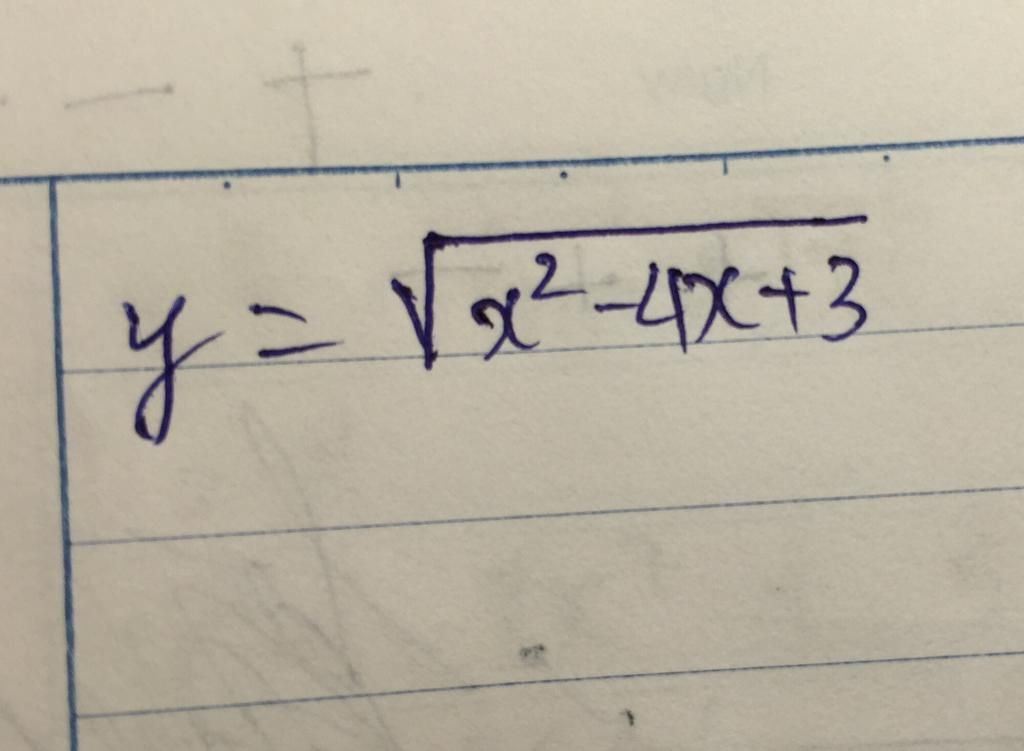 − +
y = √(x² − 4x + 3)